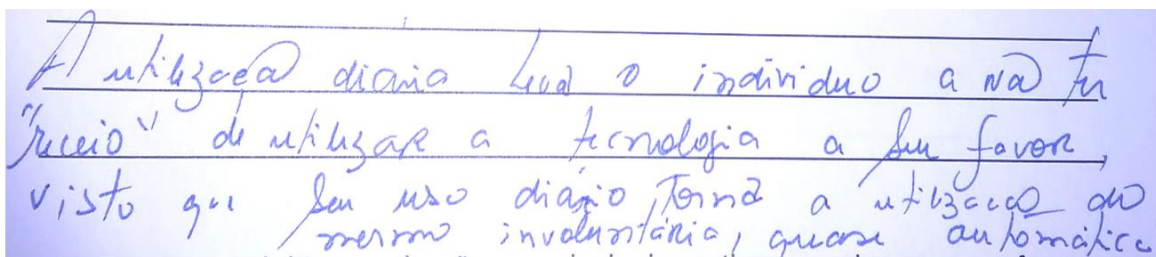 A utilização diária leva o individuo a não ter
"receio" de utilizar a tecnologia a seu favor,
visto que seu uso diário, torna a utilização do
mesmo involuntária, quase automática